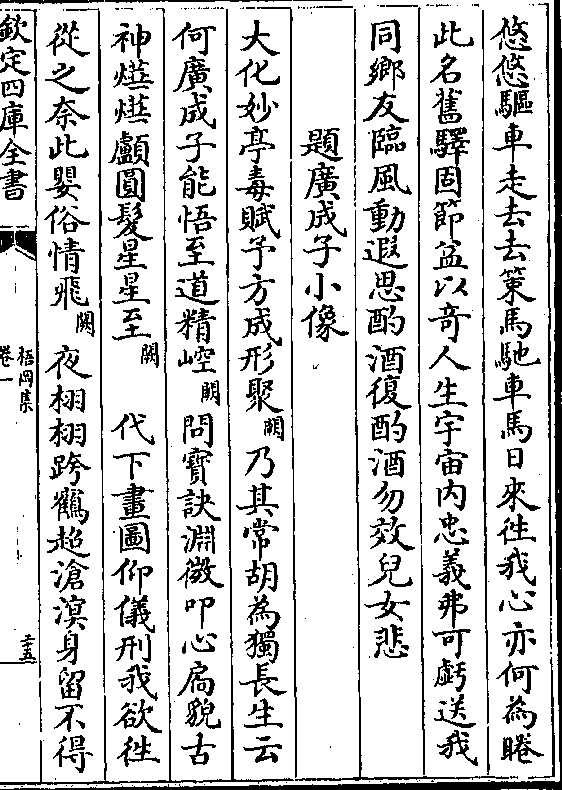 悠悠驅車走去去策馬馳車馬日來徃我心亦何為睠
此名舊驛固節盆以奇人生宇宙内忠義弗可虧送我
同鄉友臨風動遐思酌酒復酌酒勿效兒女悲
題廣成子小像
大化妙亭毒賦予方成形聚闕乃其常胡為獨長生云
何廣成子能悟至道精崆闕問寶訣淵微叩心扃貌古
神㷸㷸顱圓髮星星至闕代下畫圖仰儀刑我欲徃
從之奈此嬰俗情飛闕夜栩栩跨鶴超滄溟身留不得
欽定四庫全書
梧岡集
卷一
三十五